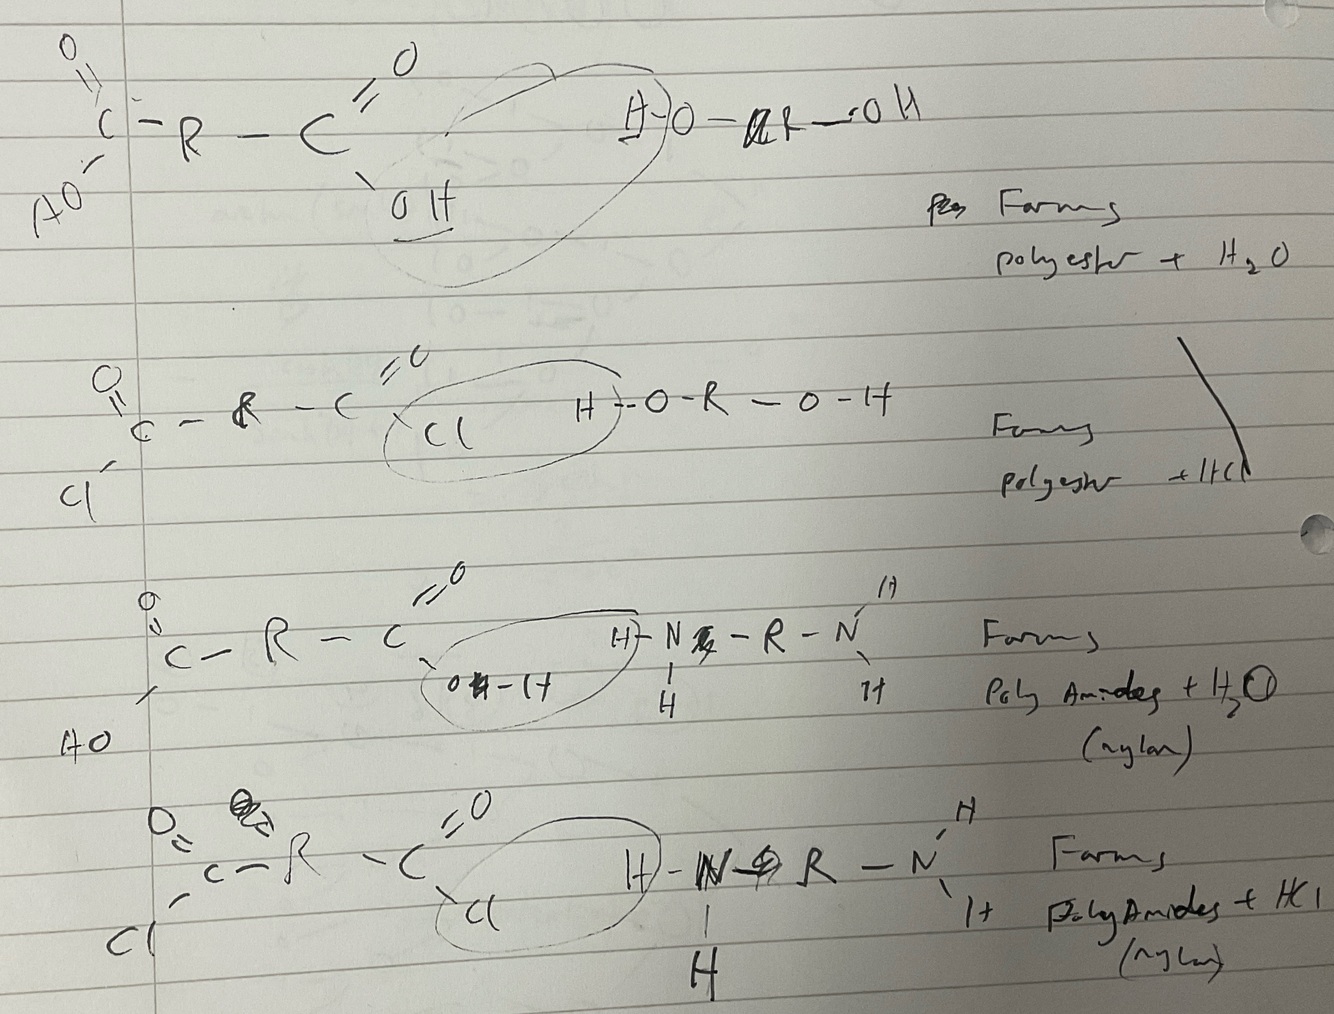 O O
C - R - C H-O - R - OH
HO OH
Forms
polyester + H2O
O O
C - R - C H-O-R - O-H
Cl Cl
Forms
polyester + HCl
O O H
C - R - C H-N - R - N Forms
O-H H H Poly Amides + H2O
HO (nylon)
O O H
C - R - C H-N - R - N Forms
Cl Cl H H PolyAmides + HCl
(nylon)